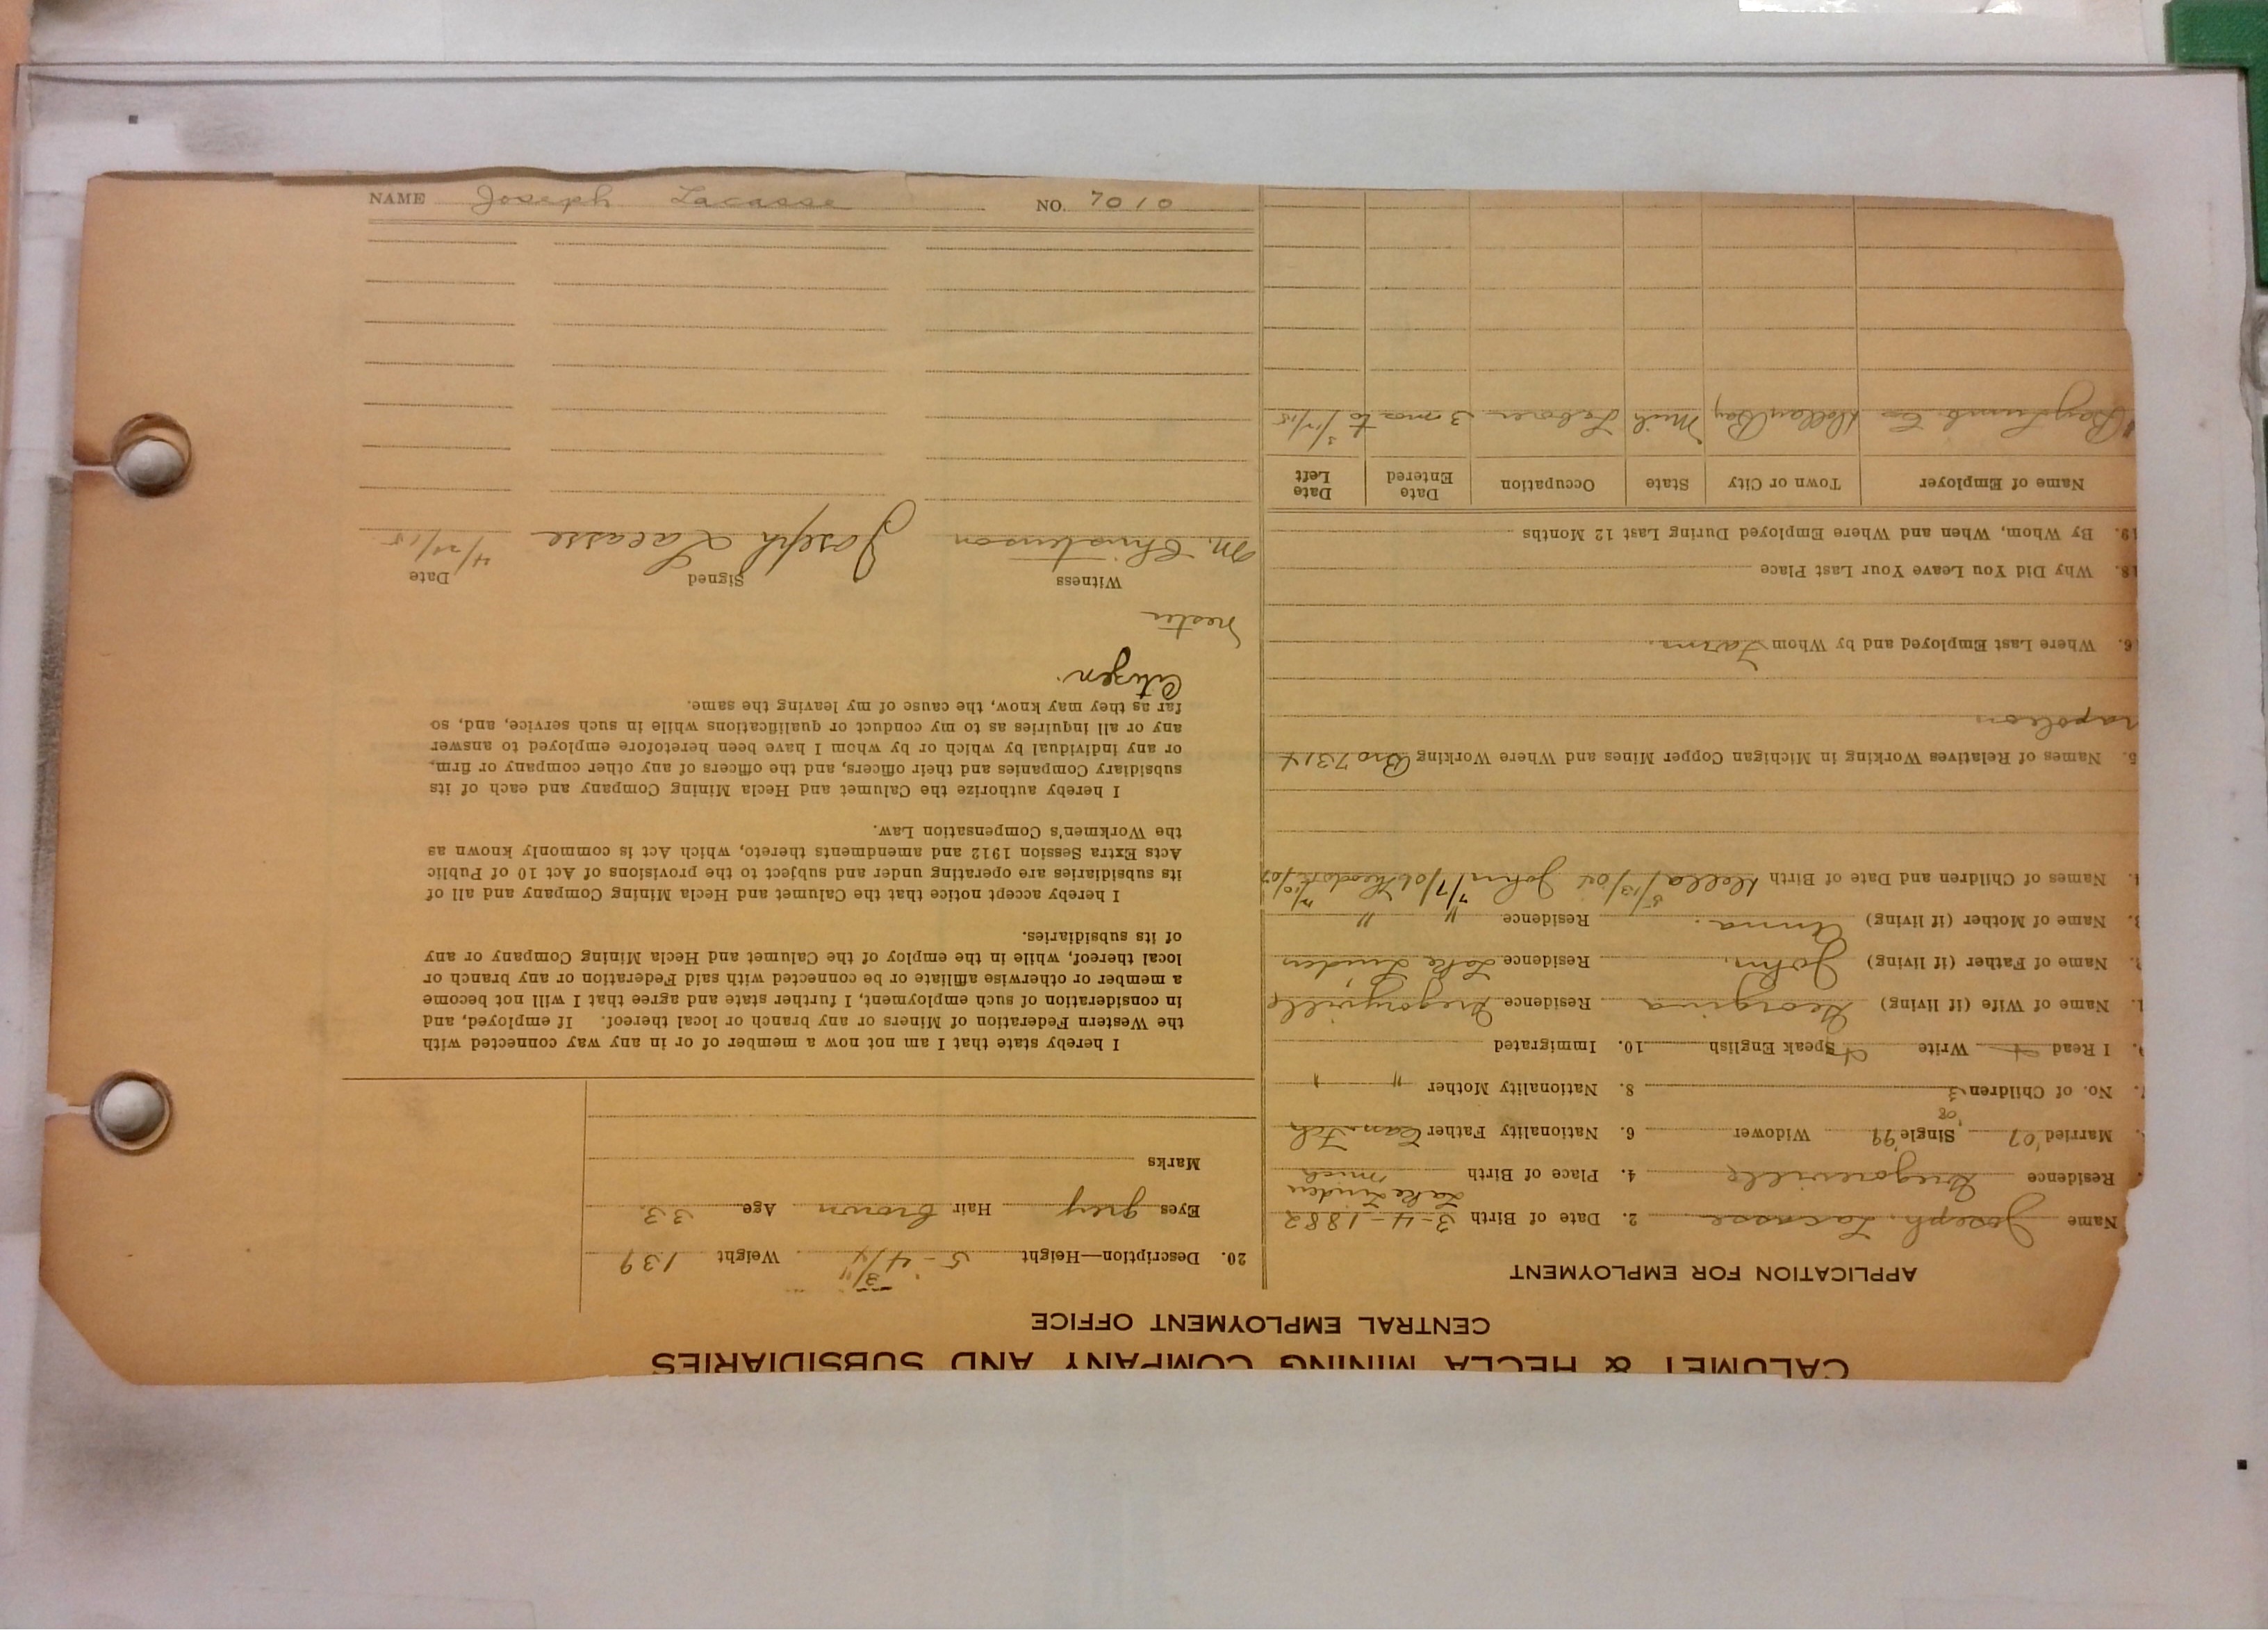 CALUMET & HECLA MINING COMPANY AND SUBSIDIARIES
CENTRAL EMPLOYMENT OFFICE
APPLICATION FOR EMPLOYMENT
Name Joseph Lacasse 2. Date of Birth 3-4-1882
Residence Gregoreville 4. Place of Birth Lake Linden Mich
Married '07 Single '99 Widower 6. Nationality Father
No. of Children 3 8. Nationality Mother " "
I Read Write Speak English 10. Immigrated
Name of Wife (if living) Georgina Residence Gregoryville
Name of Father (if living) John. Residence Lake Linden
Name of Mother (if living) Anna. Residence " "
Names of Children and Date of Birth John
Names of Relatives Working in Michigan Copper Mines and Where Working Bro 7314
napoleon
6. Where Last Employed and by Whom Farm.
18. Why Did You Leave Your Last Place
19. By Whom, When and Where Employed During Last 12 Months
Name of Employer Town or City State Occupation Date Entered Date Left
Bay Lumb Co Mich Laborer 3 mos to
20. Description—Height 5-4 3/4" Weight 139
Eyes grey Hair brown Age 33
Marks
I hereby state that I am not now a member of or in any way connected with
the Western Federation of Miners or any branch or local thereof. If employed, and
in consideration of such employment, I further state and agree that I will not become
a member or otherwise affiliate or be connected with said Federation or any branch or
local thereof, while in the employ of the Calumet and Hecla Mining Company or any
of its subsidiaries.
I hereby accept notice that the Calumet and Hecla Mining Company and all of
its subsidiaries are operating under and subject to the provisions of Act 10 of Public
Acts Extra Session 1912 and amendments thereto, which Act is commonly known as
the Workmen's Compensation Law.
I hereby authorize the Calumet and Hecla Mining Company and each of its
subsidiary Companies and their officers, and the officers of any other company or firm,
or any individual by which or by whom I have been heretofore employed to answer
any or all inquiries as to my conduct or qualifications while in such service, and, so
far as they may know, the cause of my leaving the same.
Citizen.
Nester
Witness Signed Date
M. Christenson Joseph Lacasse 4/21/15
NAME Joseph Lacasse NO. 7010